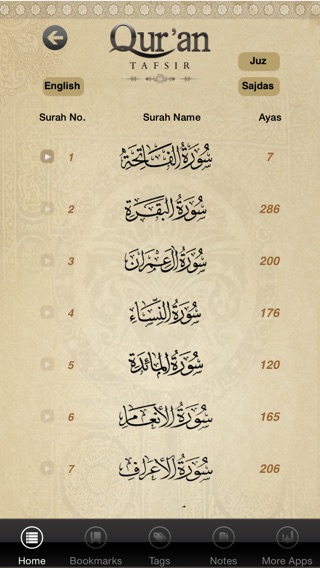 Qur'an
TAFSIR
Juz
English
Sajdas
Surah No. Surah Name Ayas
1 سُورَةُ الْفَاتِحَةِ 7
2 سُورَةُ الْبَقَرَةِ 286
3 سُورَةُ آلِ عِمْرَانَ 200
4 سُورَةُ النِّسَاءِ 176
5 سُورَةُ الْمَائِدَةِ 120
6 سُورَةُ الْأَنْعَامِ 165
7 سُورَةُ الْأَعْرَافِ 206
Home Bookmarks Tags Notes More Apps